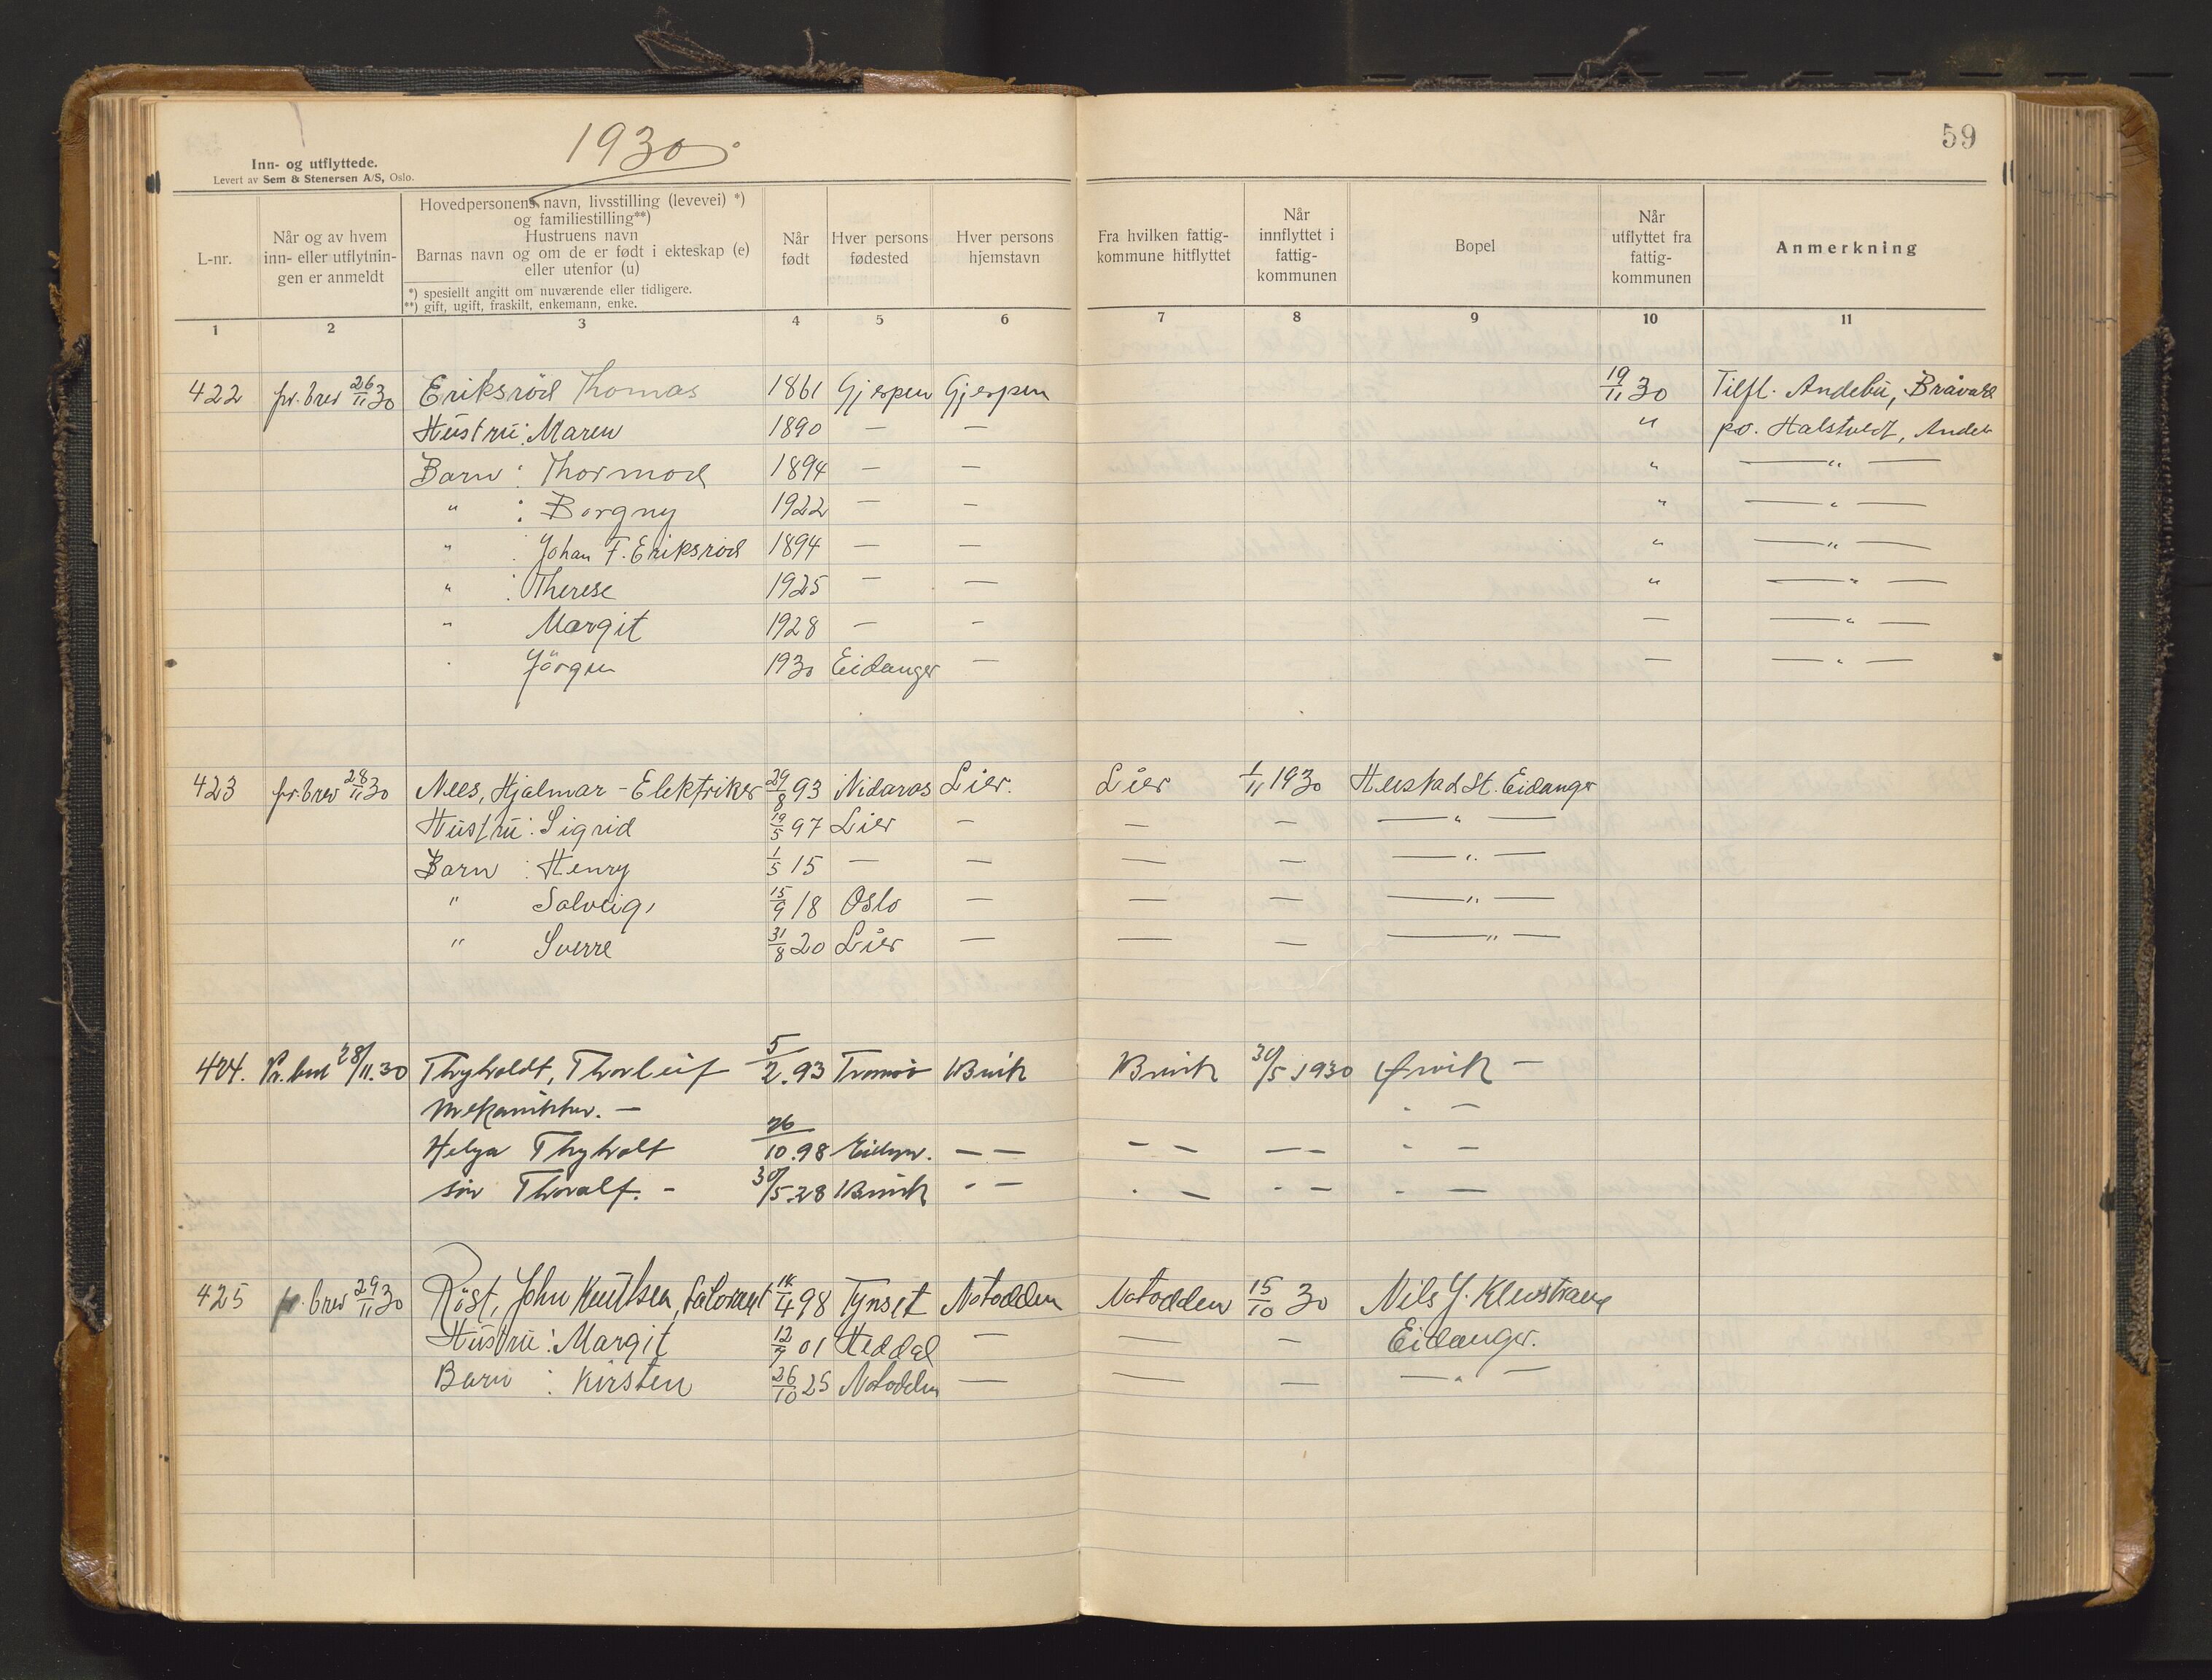 1930.
59
Inn- og utflyttede.
Levert av Sem & Stenersen A/S, Oslo.
L-nr.
Når og av hvem inn- eller utflytnin-gen er anmeldt
Hovedpersonens navn, livsstilling (levevei) *)
og familiestilling**)
Hustruens navn
Barnas navn og om de er født i ekteskap (e)
eller utenfor (u)
*) spesiellt angitt om nuværende eller tidligere.
**) gift, ugift, fraskilt, enkemann, enke.
Når født
Hver persons fødested
Hver persons hjemstavn
Fra hvilken fattig-kommune hitflyttet
Når innflyttet i fattig-kommunen
Bopel
Når utflyttet fra fattig-kommunen
Anmerkning
1 2 3 4 5 6 7 8 9 10 11
422 pr. brev 26/11 30 Eriksröd Thomas 1861 Gjerpen Gjerpen 19/11 30 Tilfl. Andebu,
Hüstrü: Maren 1890 — — " po. Halstvedt, Andeb
Barn : Thormod 1894 — — " — " —
" : Borgny 1922 — — " — " —
" : Johan T. Eriksröd 1894 — — " — " —
" : Therese 1925 — — " — " —
" Margit 1928 — — — — " —
" Jörgen 1930 Eidanger — — — " —
423 pr. brev 28/11 30 Nees, Hjalmar - Elektriker 29/8 93 Nidaros Lier. Lier 1/11 1930 Heistad St. Eidanger
Hüstrü: Sigrid 19/5 97 Lier — — — — " —
Barn : Henry 1/5 15 — — — — — " —
" Solveig, 15/9 18 Oslo — — — — " —
" Sverre 31/8 20 Lier — — — — " —
424. Pr. brev 28/11.30 Thyholdt, Thorleif 5/2.93 Tromsö Brevik Brevik 30/5 1930 Ørvik —
Mekanikker. — " —
Helga Thyholt 26/10.98 — — — — — — " —
sön Thoralf. - 30/5.28 Brevik " — " — " — " —
425 pr. brev 29/11 30 Röst, John Knutsen, 14/4 98 Tynset Notodden Notodden 15/10 30 Nils J. Klevstrand
Hüstrü: Margit 12/9 01 Heddal — — — Eidanger.
Barn : Kirsten 26/10 25 Notodden — — — — " —